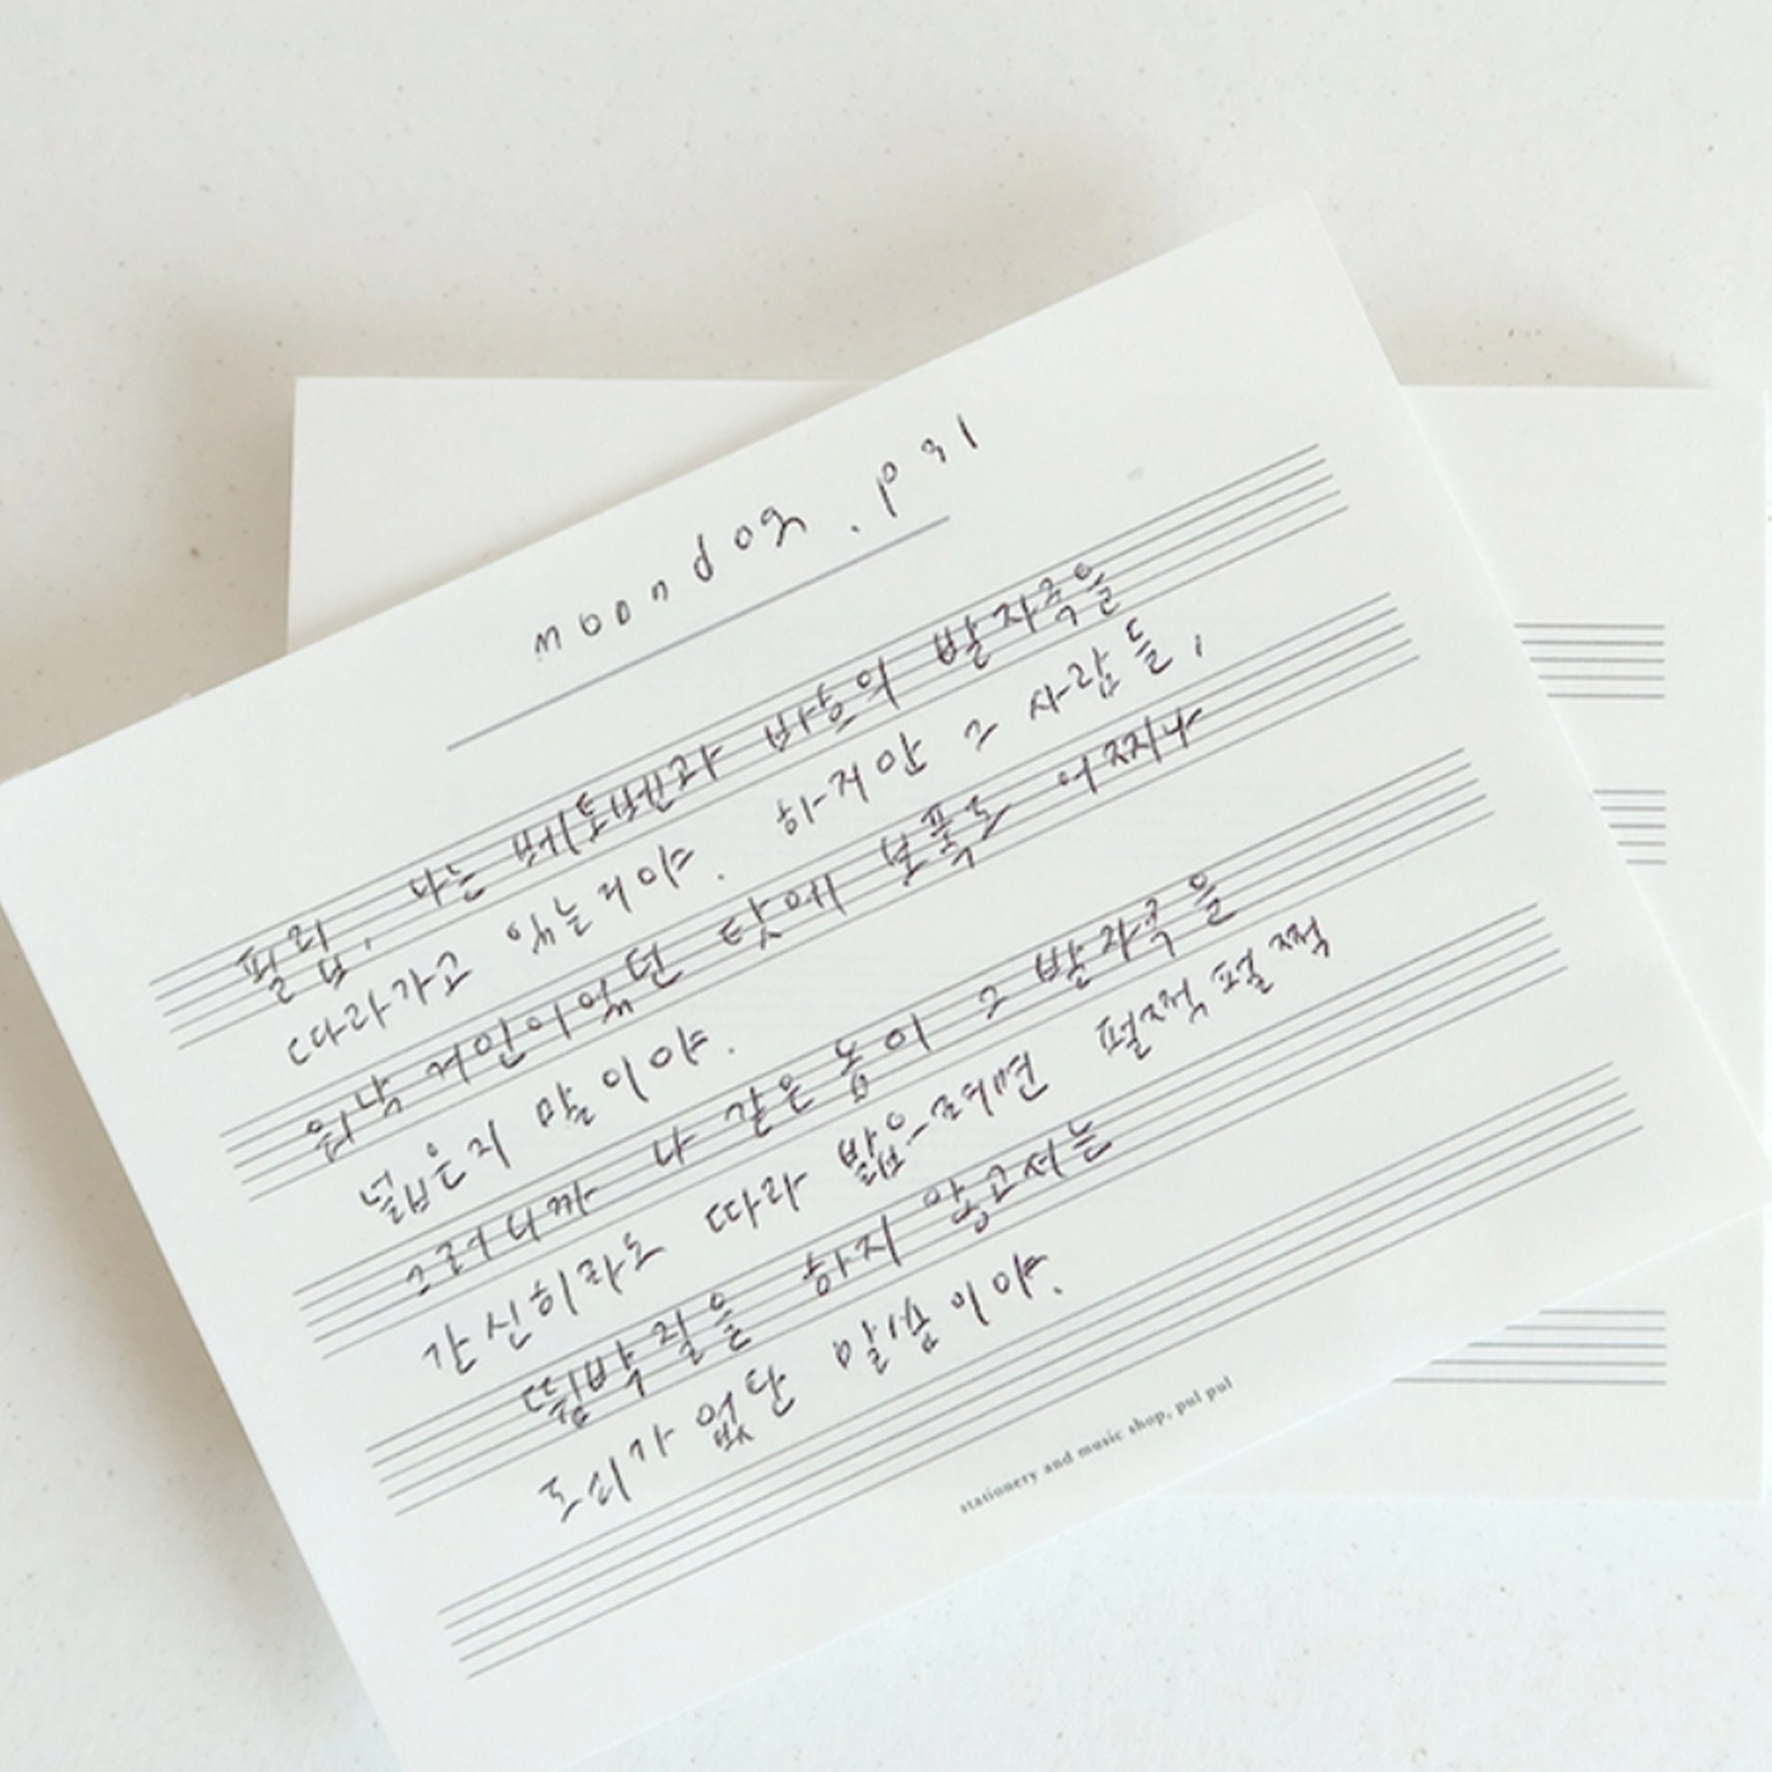 moondog . pul
필립, 나는 베토벤과 바흐의 발자국을
따라가고 있는거야. 하지만 그 사람들,
워낙 거인이었던 탓에 보폭도 어찌나
넓은지 말이야.
그러니까 나 같은 놈이 그 발자국을
간신히라도 따라 밟으려면 펄쩍펄쩍
뜀박질을 하지 않고서는
도리가 없단 말씀이야.
stationery and music shop, pul pul